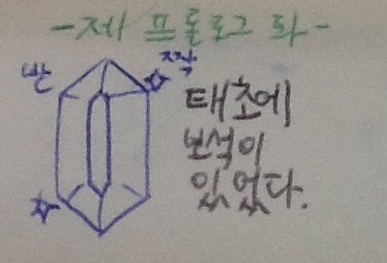 -제 프롤로그 화-
반
짝
태초에
보석이
있었다.